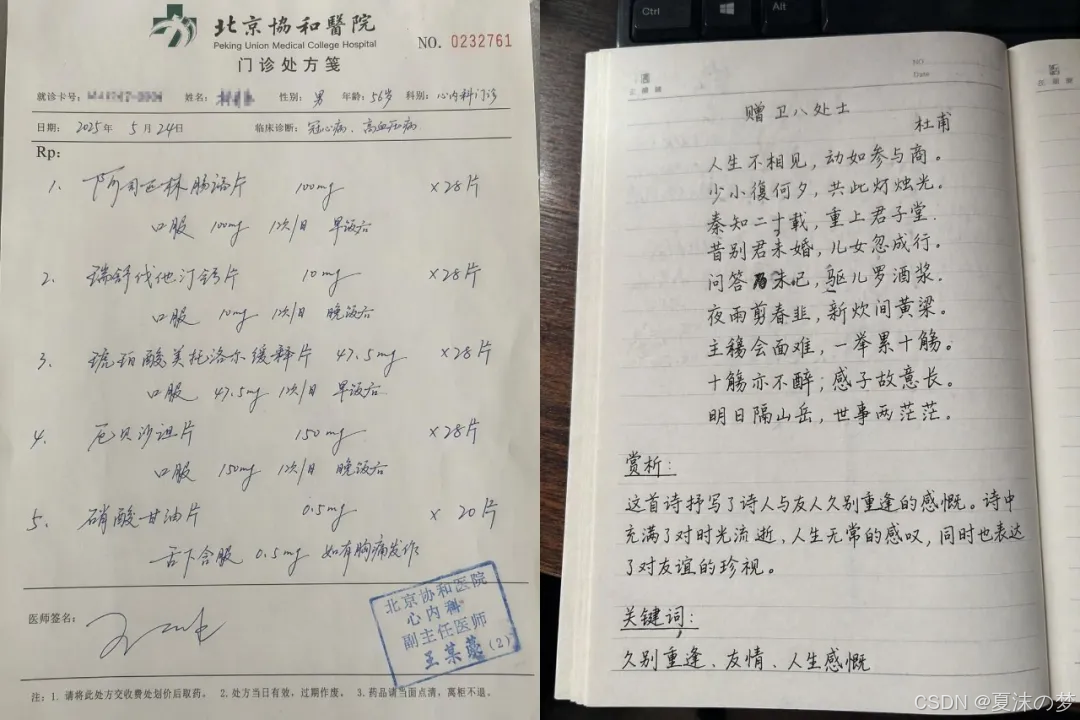 北京協和醫院
Peking Union Medical College Hospital
NO. 0232761
门诊处方笺
就诊卡号: 姓名: 性别: 男 年龄: 56岁 科别: 心内科门诊
日期: 2025年 5月24日 临床诊断: 冠心病、高血压病
Rp:
1. 阿司匹林肠溶片 100mg ×28片
口服 100mg 1次/日 早饭后
2. 瑞舒伐他汀钙片 10mg ×28片
口服 10mg 1次/日 晚饭后
3. 琥珀酸美托洛尔缓释片 47.5mg ×28片
口服 47.5mg 1次/日 早饭后
4. 厄贝沙坦片 150mg ×28片
口服 150mg 1次/日 晚饭后
5. 硝酸甘油片 0.5mg × 20片
舌下含服 0.5mg 如有胸痛发作
医师签名:
北京协和医院
心内科
副主任医师
王某 (2)
注: 1. 请将此处方交收费处划价后取药。 2. 处方当日有效，过期作废。 3. 药品请当面点清，离柜不退。
Ctrl Alt
NO
Date
赠卫八处士
杜甫
人生不相见，动如参与商。
少小復何夕，共此灯烛光。
秦知二十载，重上君子堂.
昔别君未婚，儿女忽成行。
问答未已，驱儿罗酒浆.
夜雨剪春韭，新炊间黄梁。
主称会面难，一举累十觞。
十觞亦不醉；感子故意长。
明日隔山岳，世事两茫茫。
赏析:
这首诗抒写了诗人与友人久别重逢的感慨。诗中
充满了对时光流逝、人生无常的感叹，同时也表达
了对友谊的珍视。
关键词:
久别重逢、友情、人生感慨
CSDN @夏沫の梦